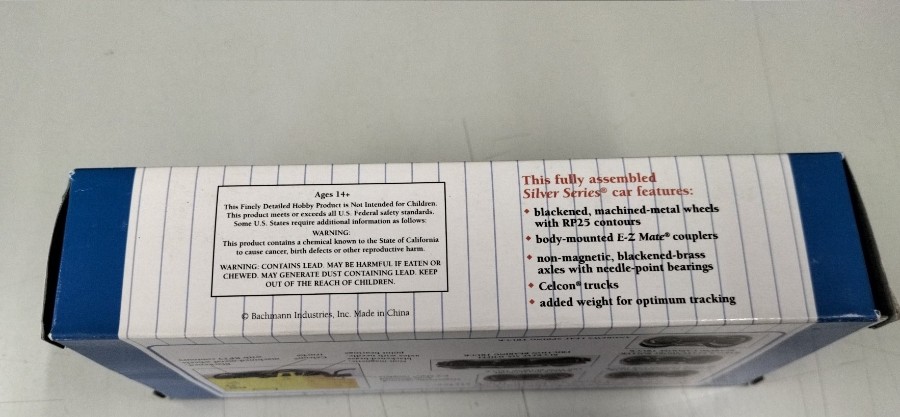 Ages 14+
This Finely Detailed Hobby Product is Not Intended for Children.
This product meets or exceeds all U.S. Federal safety standards.
Some U.S. States require additional information as follows:
WARNING:
This product contains a chemical known to the State of California
to cause cancer, birth defects or other reproductive harm.
WARNING: CONTAINS LEAD. MAY BE HARMFUL IF EATEN OR
CHEWED. MAY GENERATE DUST CONTAINING LEAD. KEEP
OUT OF THE REACH OF CHILDREN.
© Bachmann Industries, Inc. Made in China
This fully assembled
Silver Series® car features:
• blackened, machined-metal wheels
with RP25 contours
• body-mounted E-Z Mate® couplers
• non-magnetic, blackened-brass
axles with needle-point bearings
• Celcon® trucks
• added weight for optimum tracking